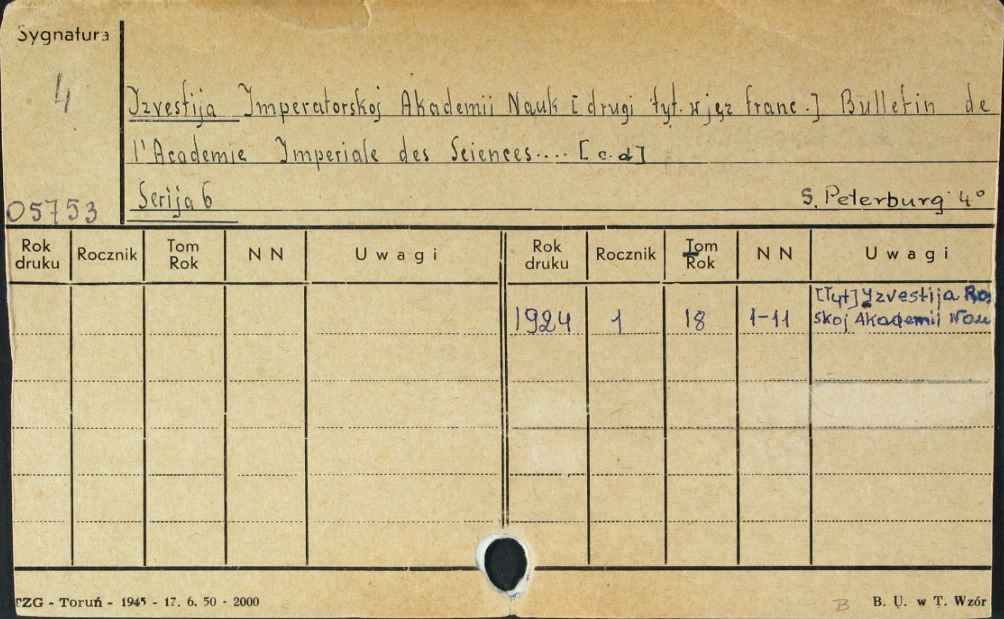 Sygnatura
4
Izvestija Imperatorskoj Akademii Nauk [drugi tyt. w jęz franc.] Bulletin de
l'Academie Imperiale des Sciences.... [c.d]
Serija 6
S. Peterburg 4°
05753
Rok druku Rocznik Tom Rok N N Uwagi Rok druku Rocznik Tom Rok N N Uwagi
[Tyt] Izvestija Ros
1924 1 18 1-11 skoj Akademii Nau
TZG - Toruń - 1945 - 17. 6. 50 - 2000
B
B. U. w T. Wzór